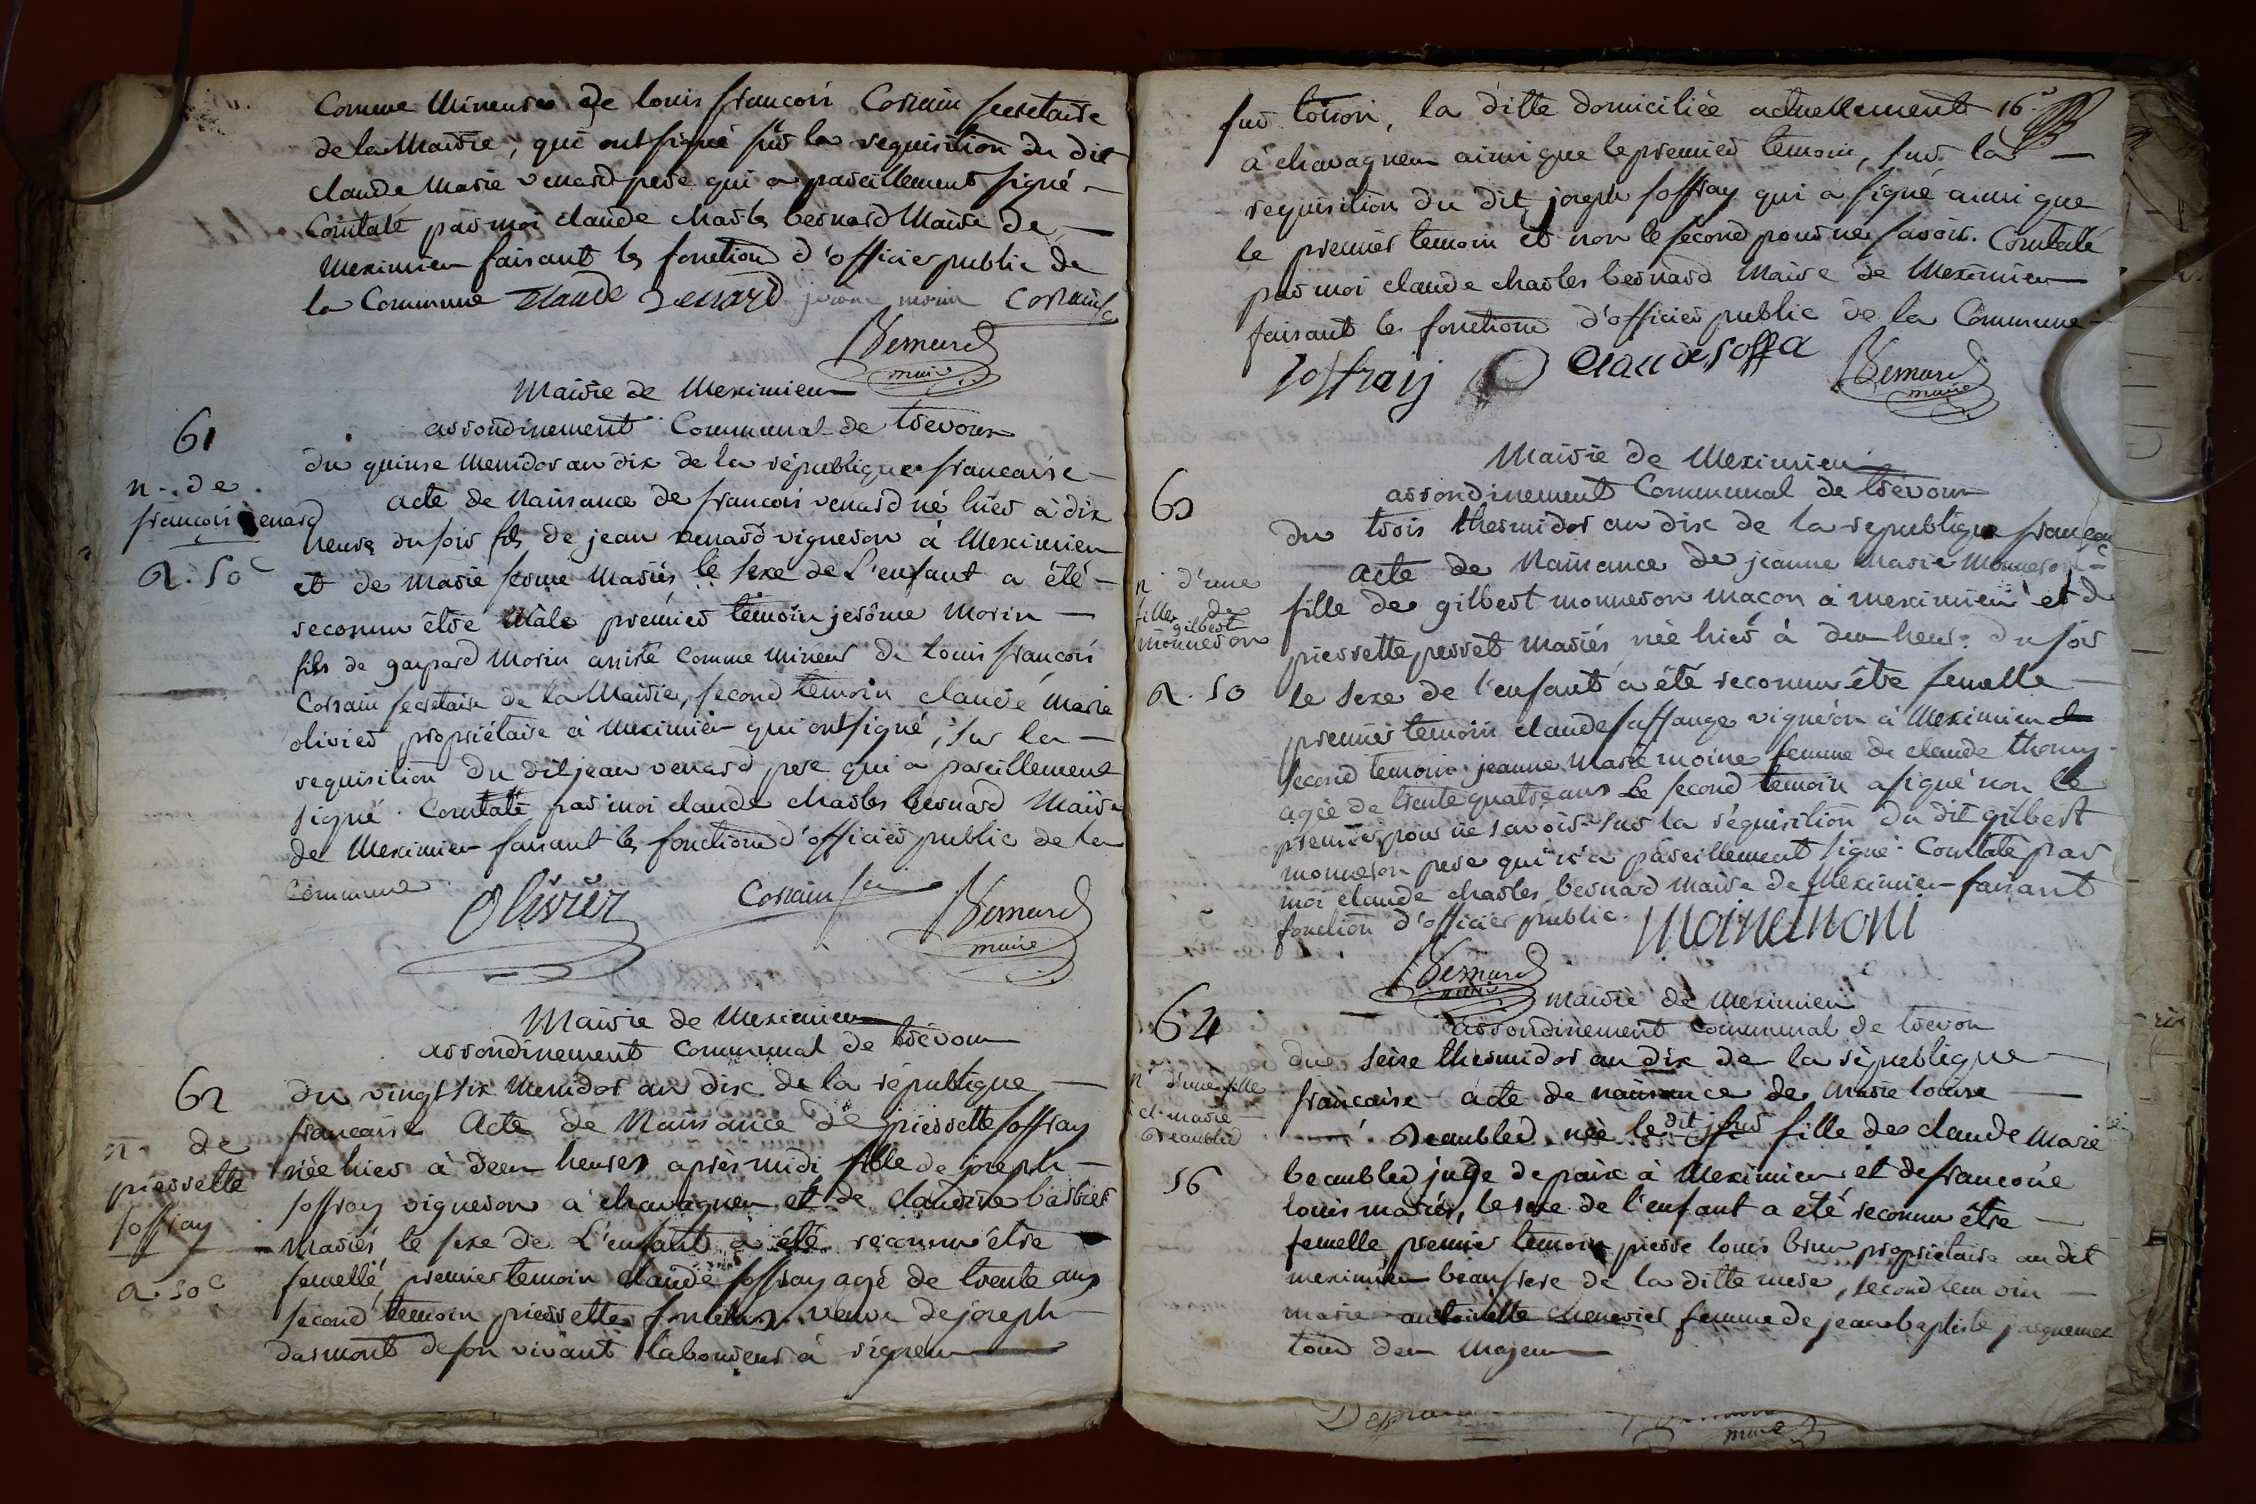 Comme mineures de louis francois Corsain secretaire
de la Mairie, qui ont signé sur la requisition du dit
claude Marie venard pere qui a pareillement signé
Constaté par moi claude charles bernard Maire de
Meximieu faisant les fonctions d'officier public de
la Commune Claude Venard jerome morin Corsain
Bernard
maire
Mairie de Meximieu
arrondinement Communal de trevoux
61
du quinse Messidor an dix de la république francaise
n. de
acte de Naissance de francois venard né hier à dix
françois venard
heures du soir fils de jean venard vigneron à Meximieu
a. 50 c
et de Marie ferme Mariés le sexe de L'enfant a été
reconnu être Mâle premier témoin jerôme Morin
fils de gaspard Morin assisté Comme Mineur de louis francois
Corsain secretaire de la Mairie, second témoin claude Marie
olivier propriétaire à Meximieu qui ont signé, sur la
requisition du dit jean venard pere qui a pareillement
signé. Constaté par moi claude charles bernard Maire
de Meximieu faisant les fonctions d'officier public de la
Commune
Olivier Corsain Bernard
maire
Mairie de Meximieu
arrondinement communal de trévoux
62
du vingt six Messidor an dix de la république
francaise Acte de Naissance de pierrette soffray
n. de
née hier à deux heures après midi fille de joseph
pierrette
soffray vigneron à chavagneux et de Claudine barbier
soffray
Mariés, le sexe de L'enfant a été reconnu être
a. 50 c
femelle, premier temoin Claude soffray agé de trente ans
second temoin pierrette veuve de joseph
darmont de son vivant laboureur à rigneux
sur toison, la ditte domiciliée actuellement 16.
à chavagneux ainsi que le premier temoin, sur la
requisition du dit joseph soffray qui a signé ainsi que
le premier temoin et non le second pour ne savoir. Constaté
par moi claude charles bernard Maire de Meximieu
faisant les fonctions d'officier public de la Commune
soffraij Claude soffra Bernard
maire
Mairie de Meximieu
63
arrondinement Communal de trévoux
du trois thermidor an dix de la republique française
n d'une
acte de Naissance de jeanne Marie Monneron
fille de
fille de gilbert monneron macon à meximieu et d
gilbert
monneron
pierrette perret mariés née hier à deux heures du soir
a. 50
le sexe de l'enfant a été reconnu être femelle
premier temoin claude suffange vignéron à Meximieu
second temoin jeanne Marie moine femme de claude thomy
agée de trente quatre ans Le second temoin a signé non le
premier pour ne savoir sur la réquisition du dit gilbert
monneron pere qui n'a pareillement signé. Constaté par
moi claude charles bernard Maire de Meximieu faisant
fonction d'officier public.
Bernard
maire
64
mairie de Meximieu
arrondinement communal de trevou
due seise thermidor an dix de la république
n d'une fille
francaise acte de naissance de Marie louise
cl. marie
Beaubled
Beaublet née le dit jour fille de claude Marie
56
beaubled juge de paix à Meximieu et de francoise
louis mariés, le sexe de l'enfant a été reconnu être
femelle premier temoin pierre louis brun propriétaire au dit
meximieu beaufrere de la ditte mere, second temoin
marie antoinette chenevier femme de jean baptiste jacquemet
tous deux Majeurs
maire